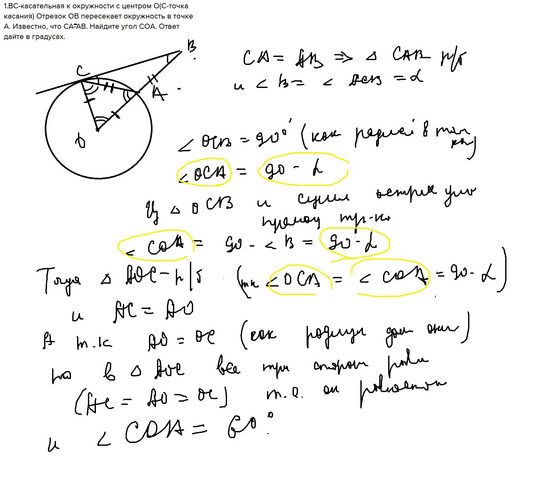 1.BC-касательная к окружности с центром O(C-точка
касания) Отрезок OB пересекает окружность в точке
A. Известно, что CA=AB. Найдите угол COA. Ответ
дайте в градусах.
C
B
A
O
CA = AB => △ CAB р/б
и < B = < ACB = α
< OCB = 90° (как радиус в точ
кас)
< OCA = 90 - α
Из △ OCB и сумме острых угл
прямоу тр-ка
< COA = 90 - < B = 90 - α
Тогда △ AOC - р/б (тк < OCA = < COA = 90 - α)
и AC = AO
А т.к AO = OC (как радиусы)
то в △ AOC все три стороны равны
(AC = AO = OC) т.е. он
и < COA = 60°.